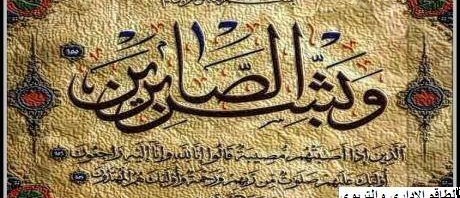 وَبَشِّرِ الصَّابِرِينَ
الَّذِينَ إِذَا أَصَابَتْهُمْ مُصِيبَةٌ قَالُوا إِنَّا لِلَّهِ وَإِنَّا إِلَيْهِ رَاجِعُونَ
أُولَئِكَ عَلَيْهِمْ صَلَوَاتٌ مِنْ رَبِّهِمْ وَرَحْمَةٌ وَأُولَئِكَ هُمُ الْمُهْتَدُونَ
الطاقم الاداري والتربوي